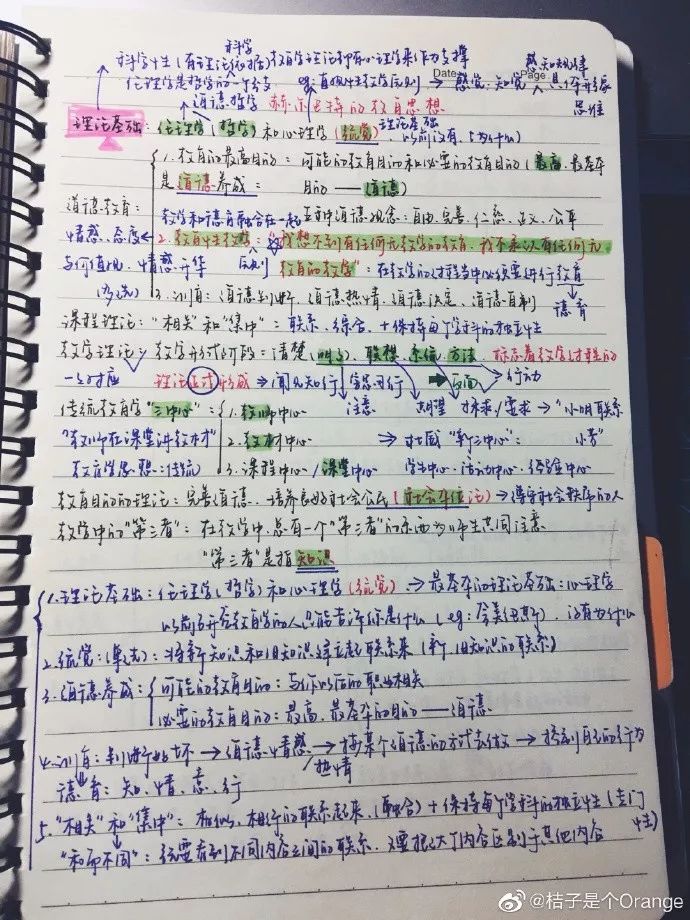 科学
科学性(有理论依据)教育学理论都有心理学来作为支撑
感、知规律
Date
Page
伦理学是哲学的一个分支
eg:直观性教学原则 → 感觉、知觉
具体形象
思维
道德哲学
赫尔巴特的教育思想
理论基础:伦理学(哲学)和心理学(统觉)
理论基础
1.教育的最高目的:可能的教育目的和必要的教育目的(最高、最基本
是道德养成:
目的——道德)
道德教育:
教学和德育融合在一起
五种道德观念:自由、完善、仁慈、正义、公平
情感、态度
2.教育性教学:"我想不到有任何无教学的教育,我不承认有任何无
与价值观、情感升华
原则
教育的教学":在教学的过程当中必须要进行教育
(多选)
3.训育:道德判断、道德热情、道德决定、道德自制
德育
课程理论:"相关"和"集中":联系、综合,+保持每个学科的独立性
教学理论:教学形式阶段:清楚(明了)、联想、系统、方法、标志着教学过程的
一一对应
理论正式形成
行动
传统教育学"三中心":
1.教师中心
注意
期望
探求/要求
→"小明联系
"教师在课堂讲教材"
2.教材中心
"新三中心":
小芳"
教育学思想:传统
3.课程中心/课堂中心
学生中心、活动中心、经验中心
教育目的的理论:完善道德、培养良好社会公民(社会本位论)→遵守社会秩序的人
教学中的"第三者":在教学中,总有一个"第三者"的东西为师生共同注意
"第三者"是指知识
1.理论基础:伦理学(哲学)和心理学(统觉) → 最基本的理论基础:心理学
2.统觉:将新知识和旧知识建立起联系来(新、旧知识的联系)
3.道德养成:
可能的教育目的:与你以后的职业相关
必要的教育目的:最高、最基本的目的——道德
4.训育:判断好坏 → 道德情感 → 按某个道德的方式去做 → 控制自己的行为
热情
德育:知、情、意、行
5."相关"和"集中":相似、相行的联系起来(融合)+保持每个学科的独立性(专门
性)
"和而不同":既要看到不同内容之间的联系,又要把这个内容区别于其他内容
@桔子是个Orange